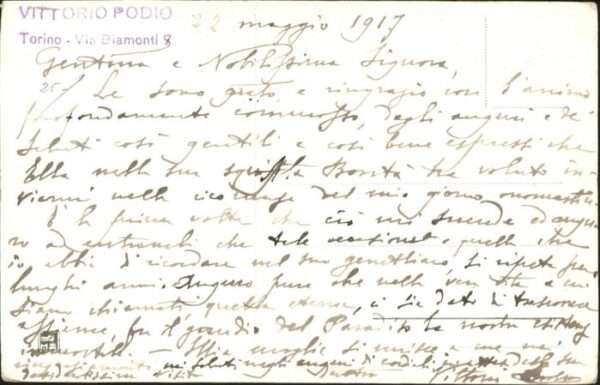 VITTORIO PODIO
Torino - Via Biamonti 8
22 maggio 1917
Gentilma e Nobilissima Signora,
Le sono grato e ringrazio con l'animo
profondamente commosso, degli auguri e dei
saluti così gentili e così bene espressi che
Ella nella sua squisita Bontà ha voluto in-
viarmi nella ricorrenza del mio giorno onomastico
È la prima volta che ciò mi succede ed augu
ro ad entrambi che tale e quella che
io ebbi di ricordare nel suo genetliaco, si ripeta per
lunghi anni. Auguro pure che nella vita a cui
siamo chiamati questa eterna, ci sia dato di trascorrere
assieme fra il gaudio del Paradiso la nostra
immortali - Mia moglie si unisce a me
saluti negli auguri di